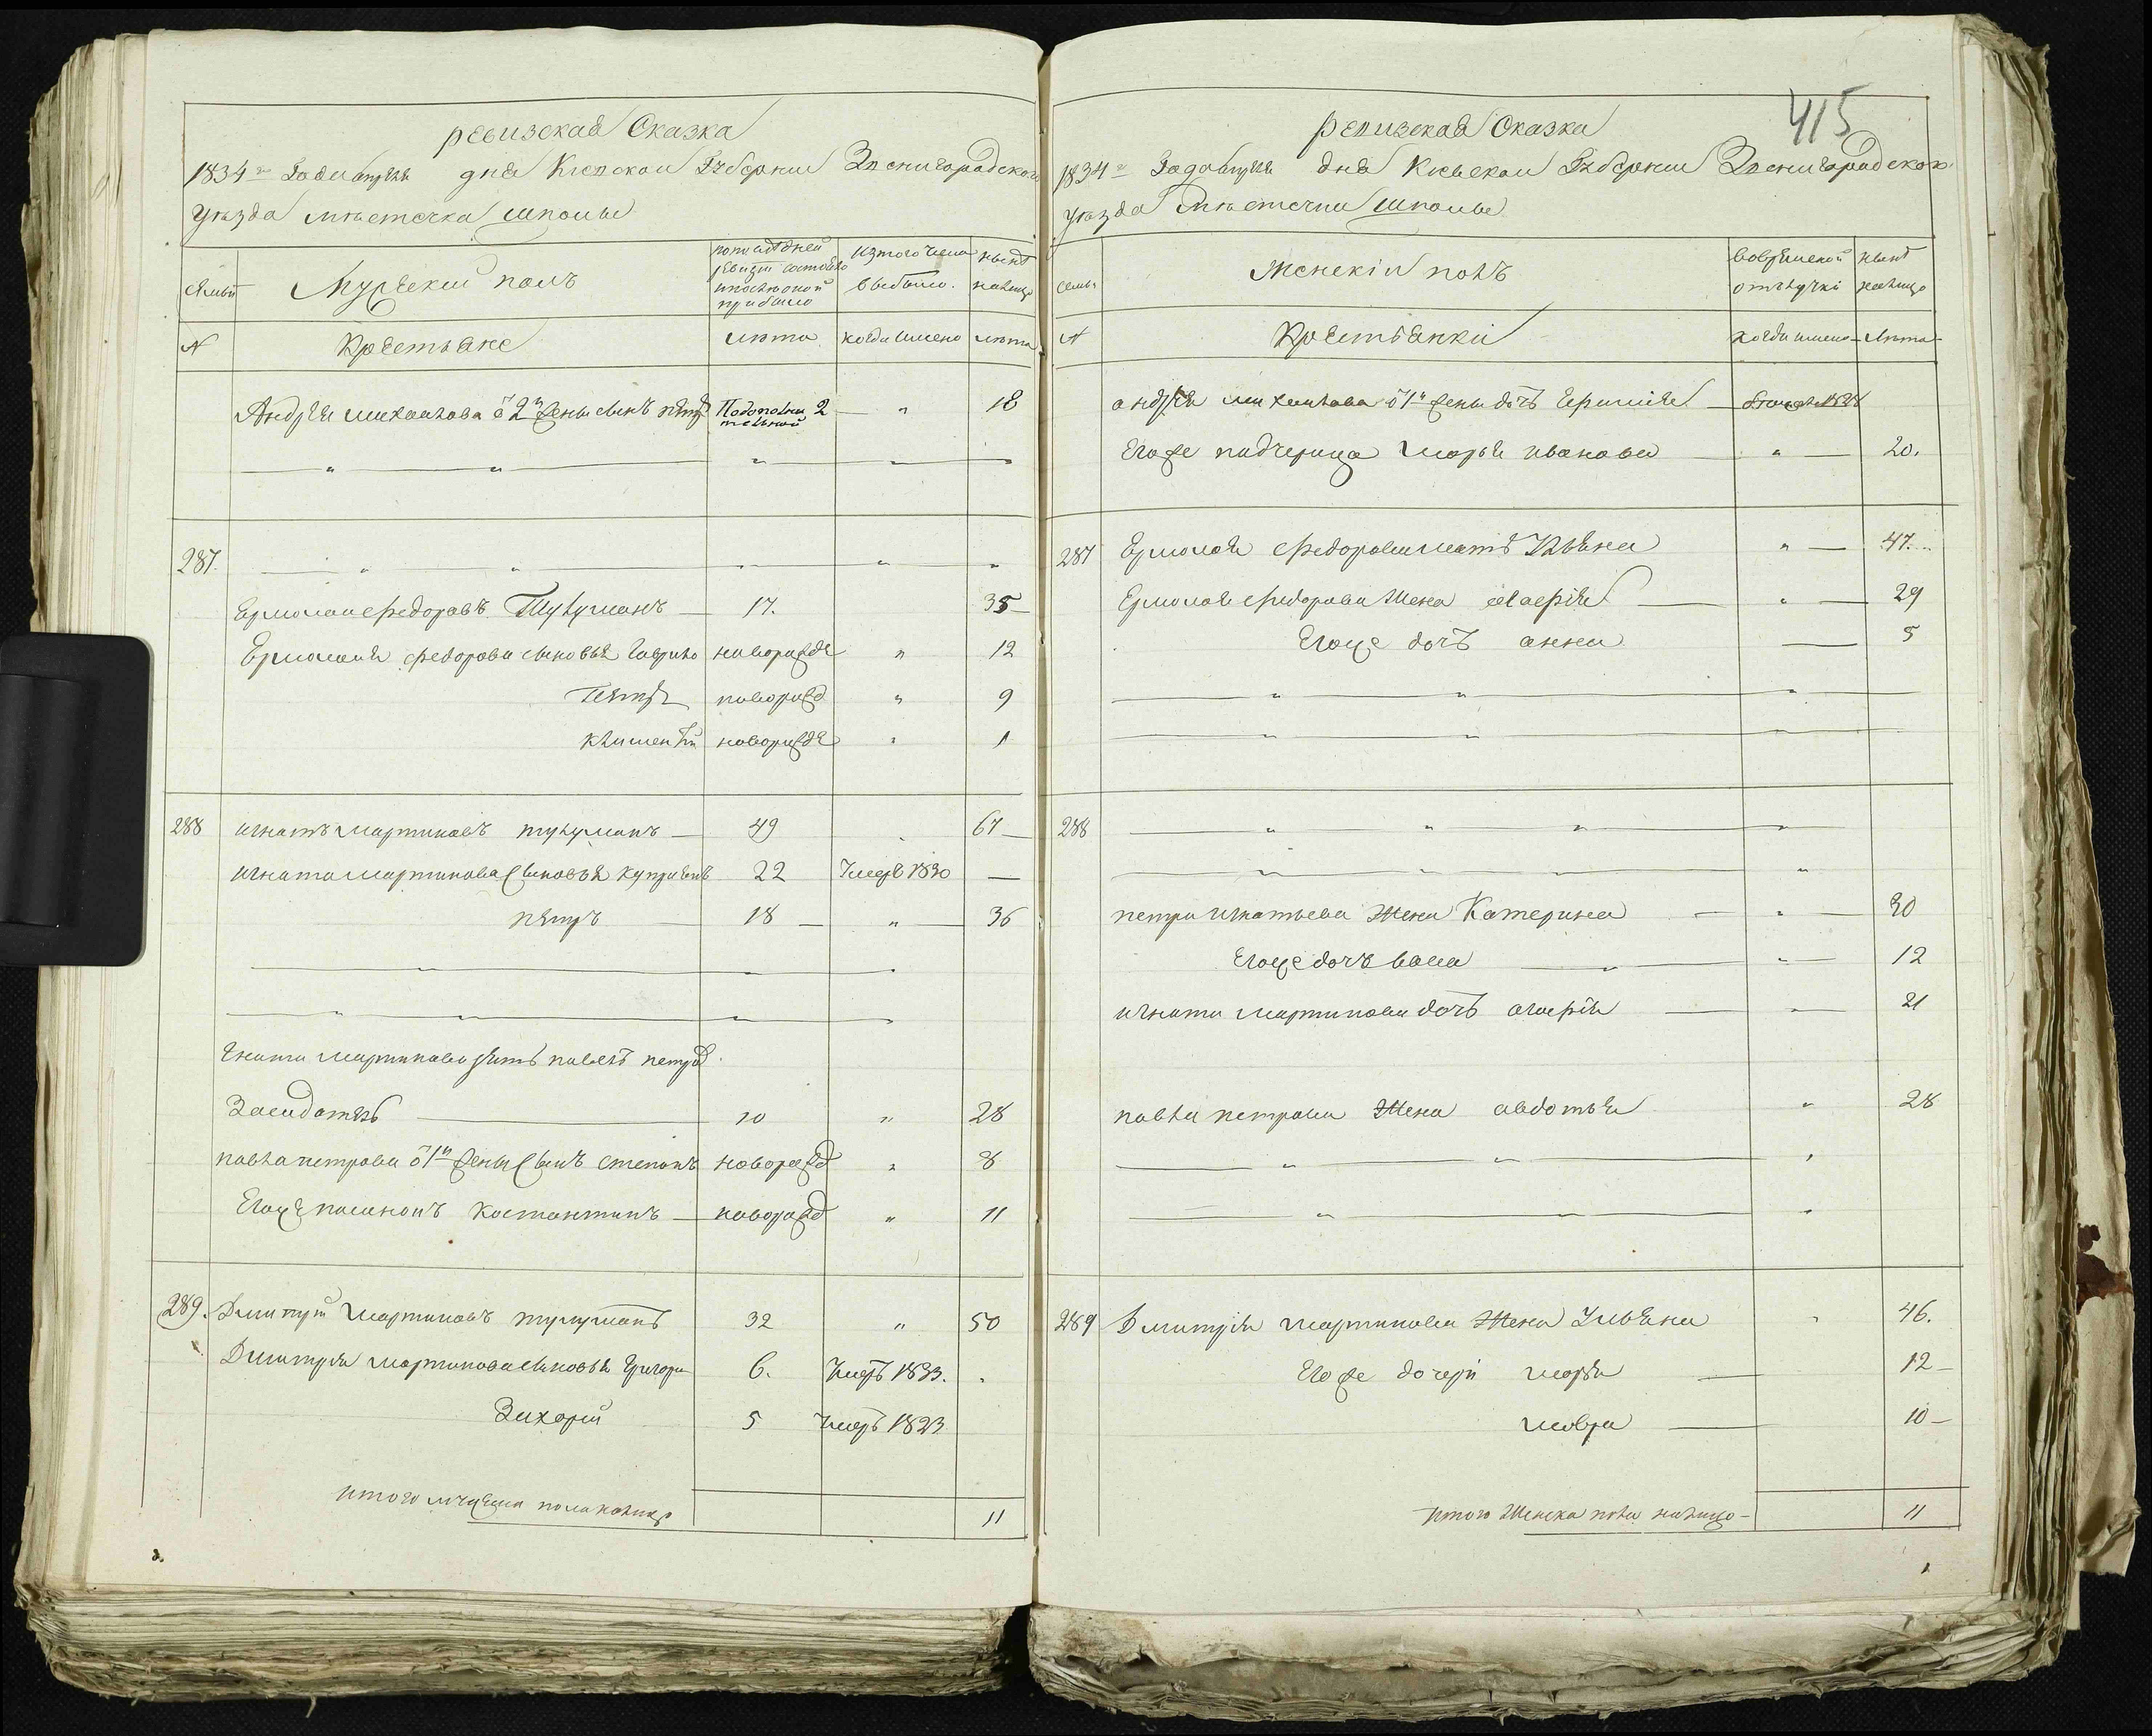 ревизская Сказка
1834го Года апреля дня Киевской Губернии Звенигородского
уезда местечка Шполы
семьи
Мужеский полъ
по последней ревизии состояло и после оной прибыло
из того числа выбыло.
ныне налицо
№
Крестьяне
лета
когда имено
лета
Андрея Михайлова от 2й жены сынъ Петръ Подополнительной 2 " 18
287.
Ермолай Федоровъ Тулуманъ 17. 35
Ермолая Федорова сыновья Гаврило новорожде " 12
Петръ новорожд " 9
Климентий новорожде " 1
288 Игнатъ Мартиновъ тулуманъ 49 67
Игната Мартинова Сыновья Куприянъ 22 Умеръ 1830 —
петръ 18 " 36
Игната Мартинова зять павелъ петровъ
10 " 28
павла петрова от 1й жены Сынъ степанъ новорожд " 8
Егоже пасинокъ Костантинъ новорожд " 11
289. Дмитрий Мартиновъ тулуманъ 32 " 50
Дмитрия Мартинова сыновья Григорий 6. Умеръ 1833.
Захорий 5 Умеръ 1823
итого мужеска пола налицо 11
415
ревизская Сказка
1834го Года апреля дня Киевской Губернии Звенигородского
уезда Местечка Шполы
семьи
Женский полъ
во временной отлучке
ныне налицо
№
Крестьянки
когда имено
лета
андрея михайлова от 1й жены дочь
Егоже падчерица Марья иванова " 20.
287 Ермолая федорова мать Ульяна " 47.
Ермолая федорова Жена агафия " 29
Егоже дочь анна 5
288
петра игнатьева Жена Катерина " 30
Егоже дочь 12
игната Мартинова дочь агафия 21
павла петрова Жена авдотья " 28
289 Дмитрия мартинова Жена Ульяна 46.
Егоже дочери марья 12
мавра 10
итого Женска пола налицо 11